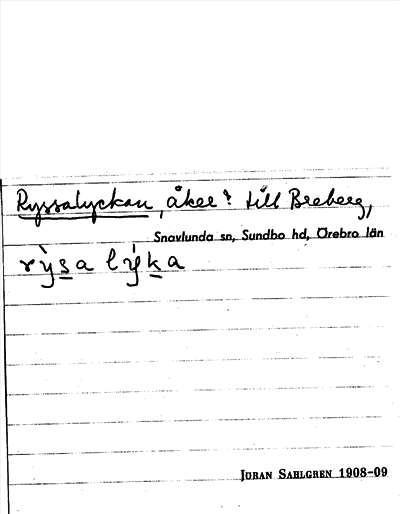 Ryssalyckan, åker? till Breberg,
Snavlunda sn, Sundbo hd, Örebro län
rỳsa lýka
JÖRAN SAHLGREN 1908-09